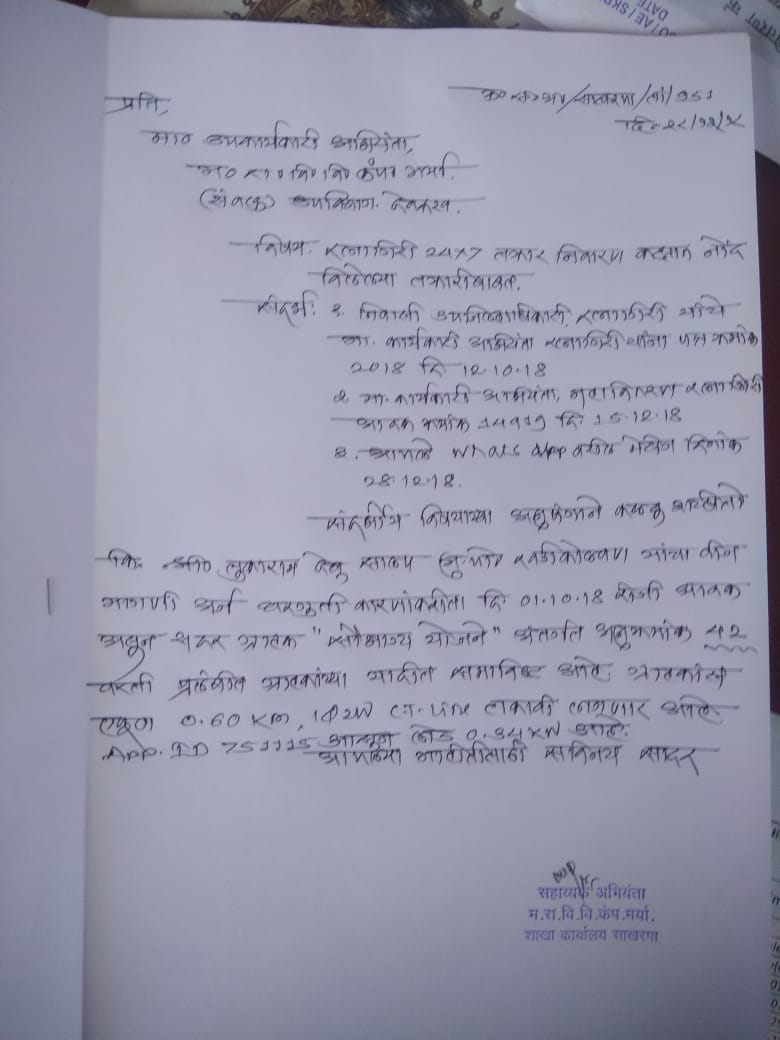 प्रति,
क्र० स०अभि/साखरपा/तां/951
दि० २८/१२/१८
मा० उपकार्यकारी अभियंता,
म० रा० वि० वि० कंप० मर्या.
(संवसु) उपविभाग. देवरुख.
विषय. रत्नागिरी 24x7 तक्रार निवारण कक्षात नोंद
केलेल्या तक्रारीबाबत.
संदर्भ: १. निवासी उपजिल्हाधिकारी, रत्नागिरी यांचे
मा. कार्यकारी अभियंता रत्नागिरी यांना पत्र क्रमांक
2018 दि 12.10.18
२. मा. कार्यकारी अभियंता, महावितरण रत्नागिरी
आवक क्रमांक 14919 दि: 15.12.18
३. आपले Whats App वरील मेसेज दिनांक
28.12.18.
संदर्भीय विषयाच्या अनुषंगाने कळवू इच्छितो
कि श्री० तुकाराम देवु साळप मु.पो० यांचा वीज
मागणी अर्ज घरगुती कारणांकरीता दि 01.10.18 रोजी आवक
असून सदर ग्राहक "सौभाग्य योजने" अंतर्गत अनुक्रमांक 42
वरती प्रलंबित ग्राहकांच्या यादीत समाविष्ट आहे. ग्राहकांस
एकूण 0.60 KM, 1Φ2W LT-Line टाकावी लागणार आहे.
App. ID 751115 असून लोड 0.34 KW आहे.
आपल्या माहितीसाठी सविनय सादर
सहाय्यक अभियंता
म.रा.वि.वि.कंप.मर्या.
शाखा कार्यालय साखरपा
DATE